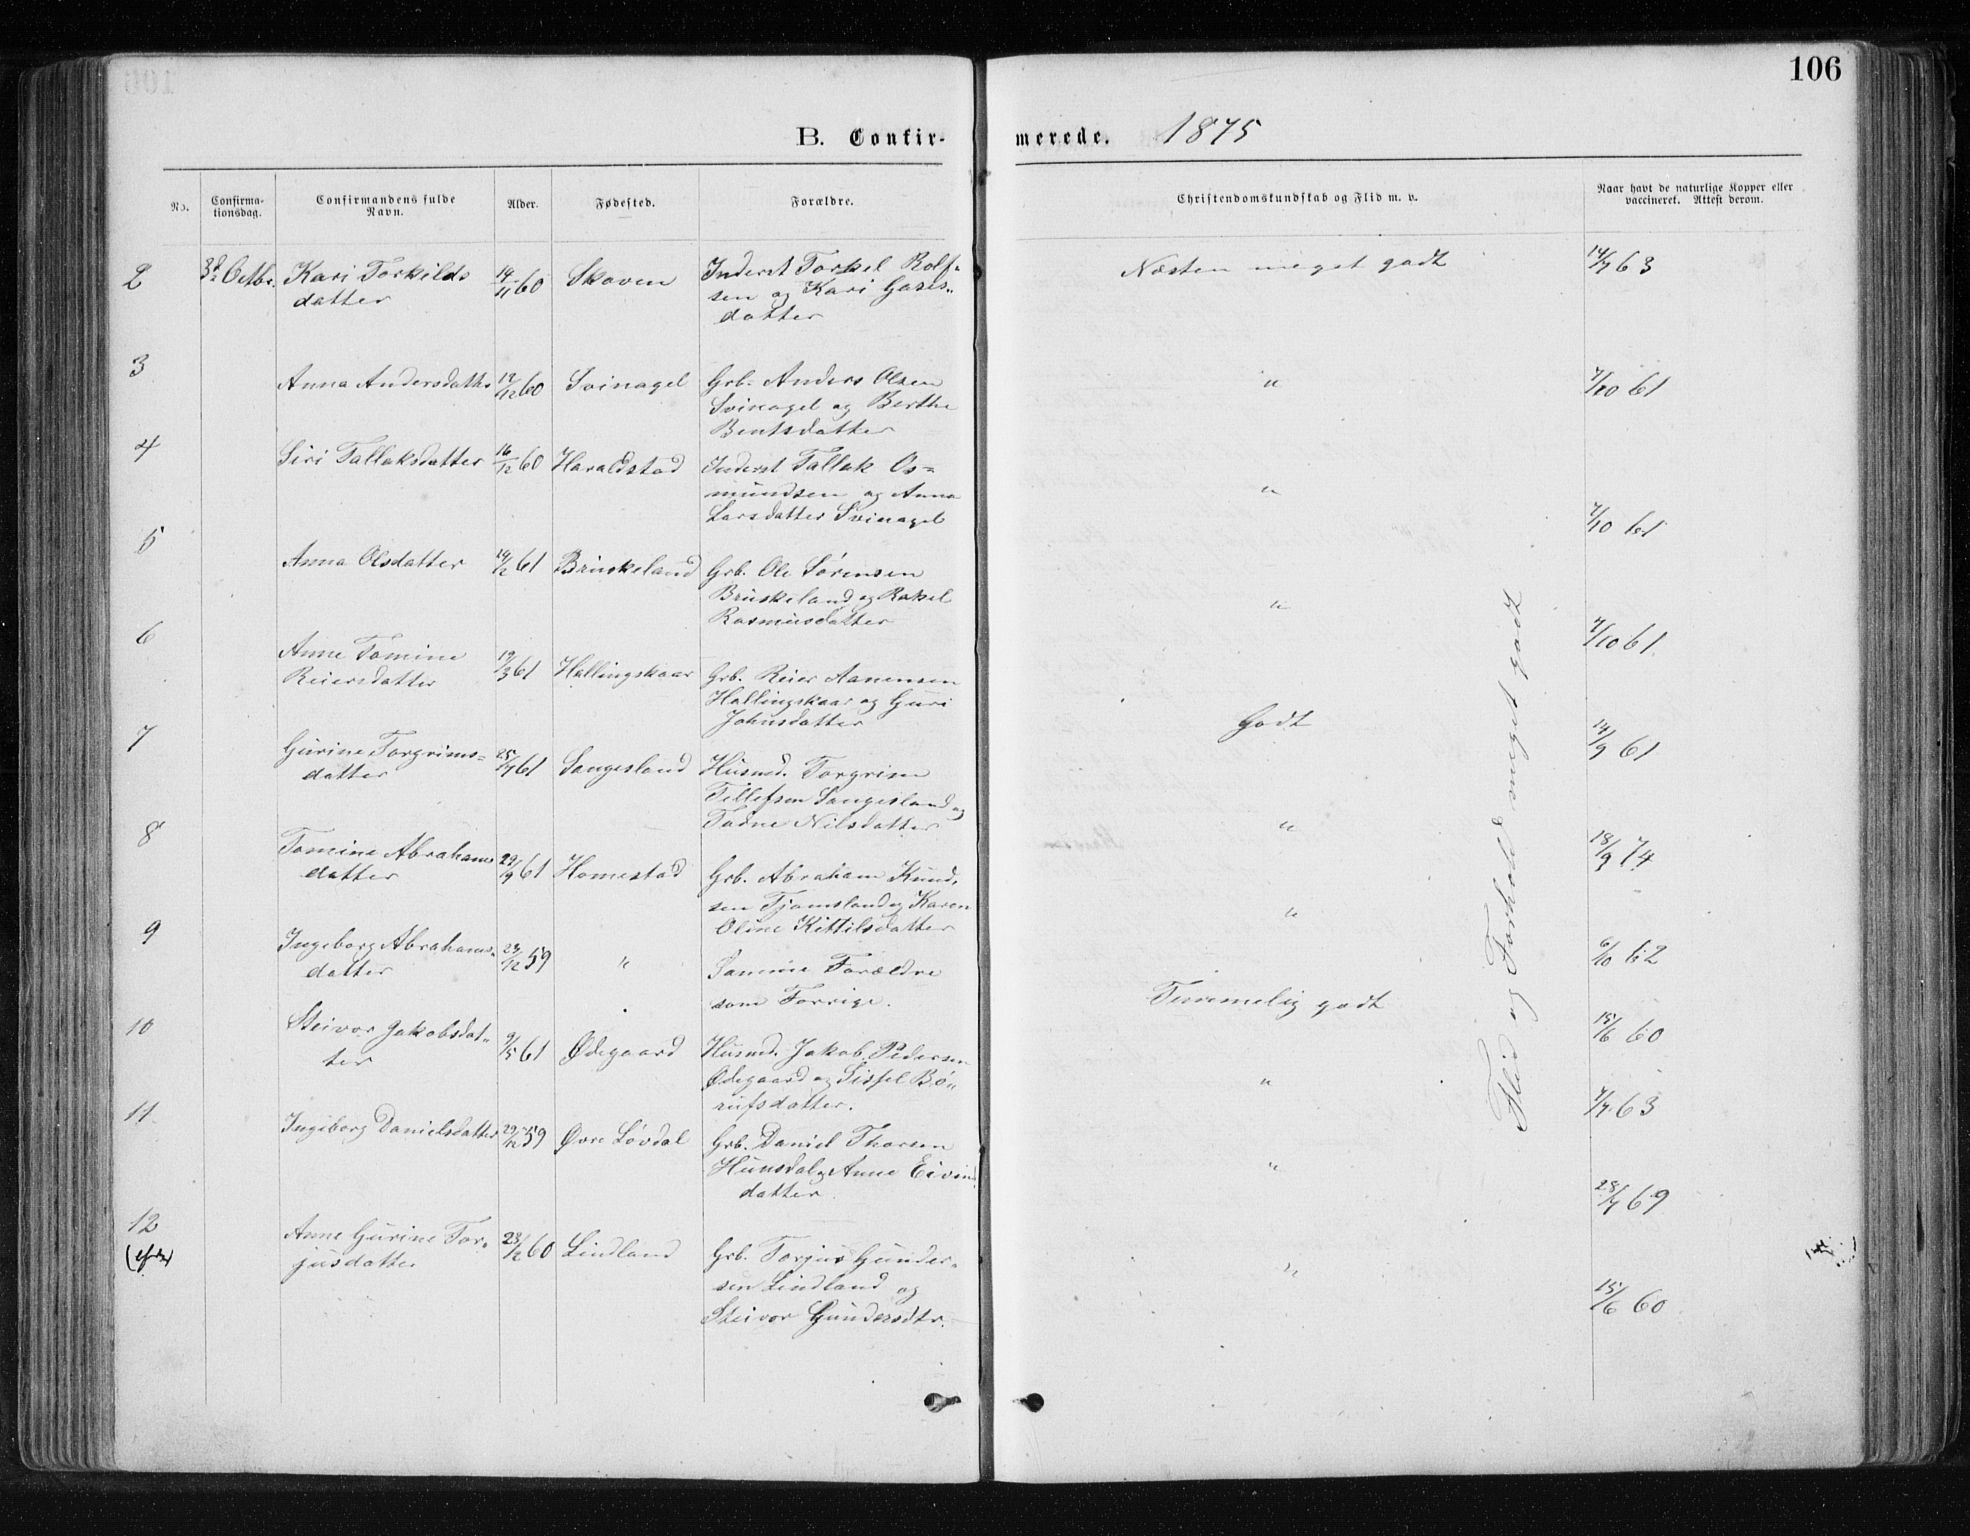 106
B. Confirmerede. 1875
No. Confirmationsdag. Confirmandens fulde Navn. Alder. Fødested. Forældre. Christendomskundskab og Flid m. v. Naar havt de naturlige Kopper eller vaccineret. Attest derom.
2 3d Octbr. Kari Torkilds 14/11 60 Skoven Inderst Torkel Rolf- Næsten meget godt 14/7 63
datter sen og Kari
datter
3 Anna Andersdatter 12/12 60 Svinagel Grb. Anders Olsen " 7/10 61
Svinagel og Berthe
Bentsdatter
4 Siri Tallaksdatter 16/12 60 Haraldstad Inderst Tallak Os= " 7/10 61
mundsen og Anna
Larsdatter Svinagel
5 Anna Olsdatter 14/2 61 Bruskeland Grb. Ole Sørensen " 7/10 61
Bruskeland og Rakel
Rasmusdatter
6 Anne Tomine 19/3 61 Hallingskaar Grb. Reier Aanensen Godt 14/9 61
Reiersdatter Hallingskaar og Guri
Johnsdatter
7 Gurine Torgrims= 25/7 61 Sangesland Husmd. Torgrim " 18/9 74
datter Tellefsen Sangesland og
Tadne Nilsdatter
8 Tomine Abrahams 29/9 61 Homestad Grb. Abraham Knud- " 6/10 62
datter sen Tjomsland og Karen
Oline Kittilsdatter
9 Ingeborg Abrahams- 23/12 59 " Samme Forældre Temmelig godt 15/6 60
datter som Forrige.
10 Steivor Jakobsdat- 9/5 61 Ødegaard Husmd. Jakob Pedersen " 7/7 63
ter Ødegaard og Sissel Bø-
rufsdatter.
11 Ingeborg Danielsdatter 29/12 59 Øvre Løvdal Grb. Daniel Thorsen " 28/7 69
Hunsdal og Anne Eivind
datter
12 Anne Gurine Tor- 23/2 60 Lindland Grb. Torjus Gunder- " 15/6 60
jusdatter sen Lindland og
Steivor Gundersdtr.
Flid og Forhold meget godt